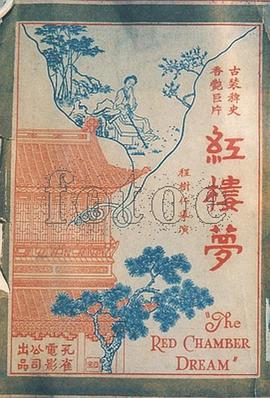 古裝稗史
香艷巨片
紅樓夢
程樹仁導演
fotoe
"The
RED CHAMBER
DREAM"
孔雀
電影
公司
出品